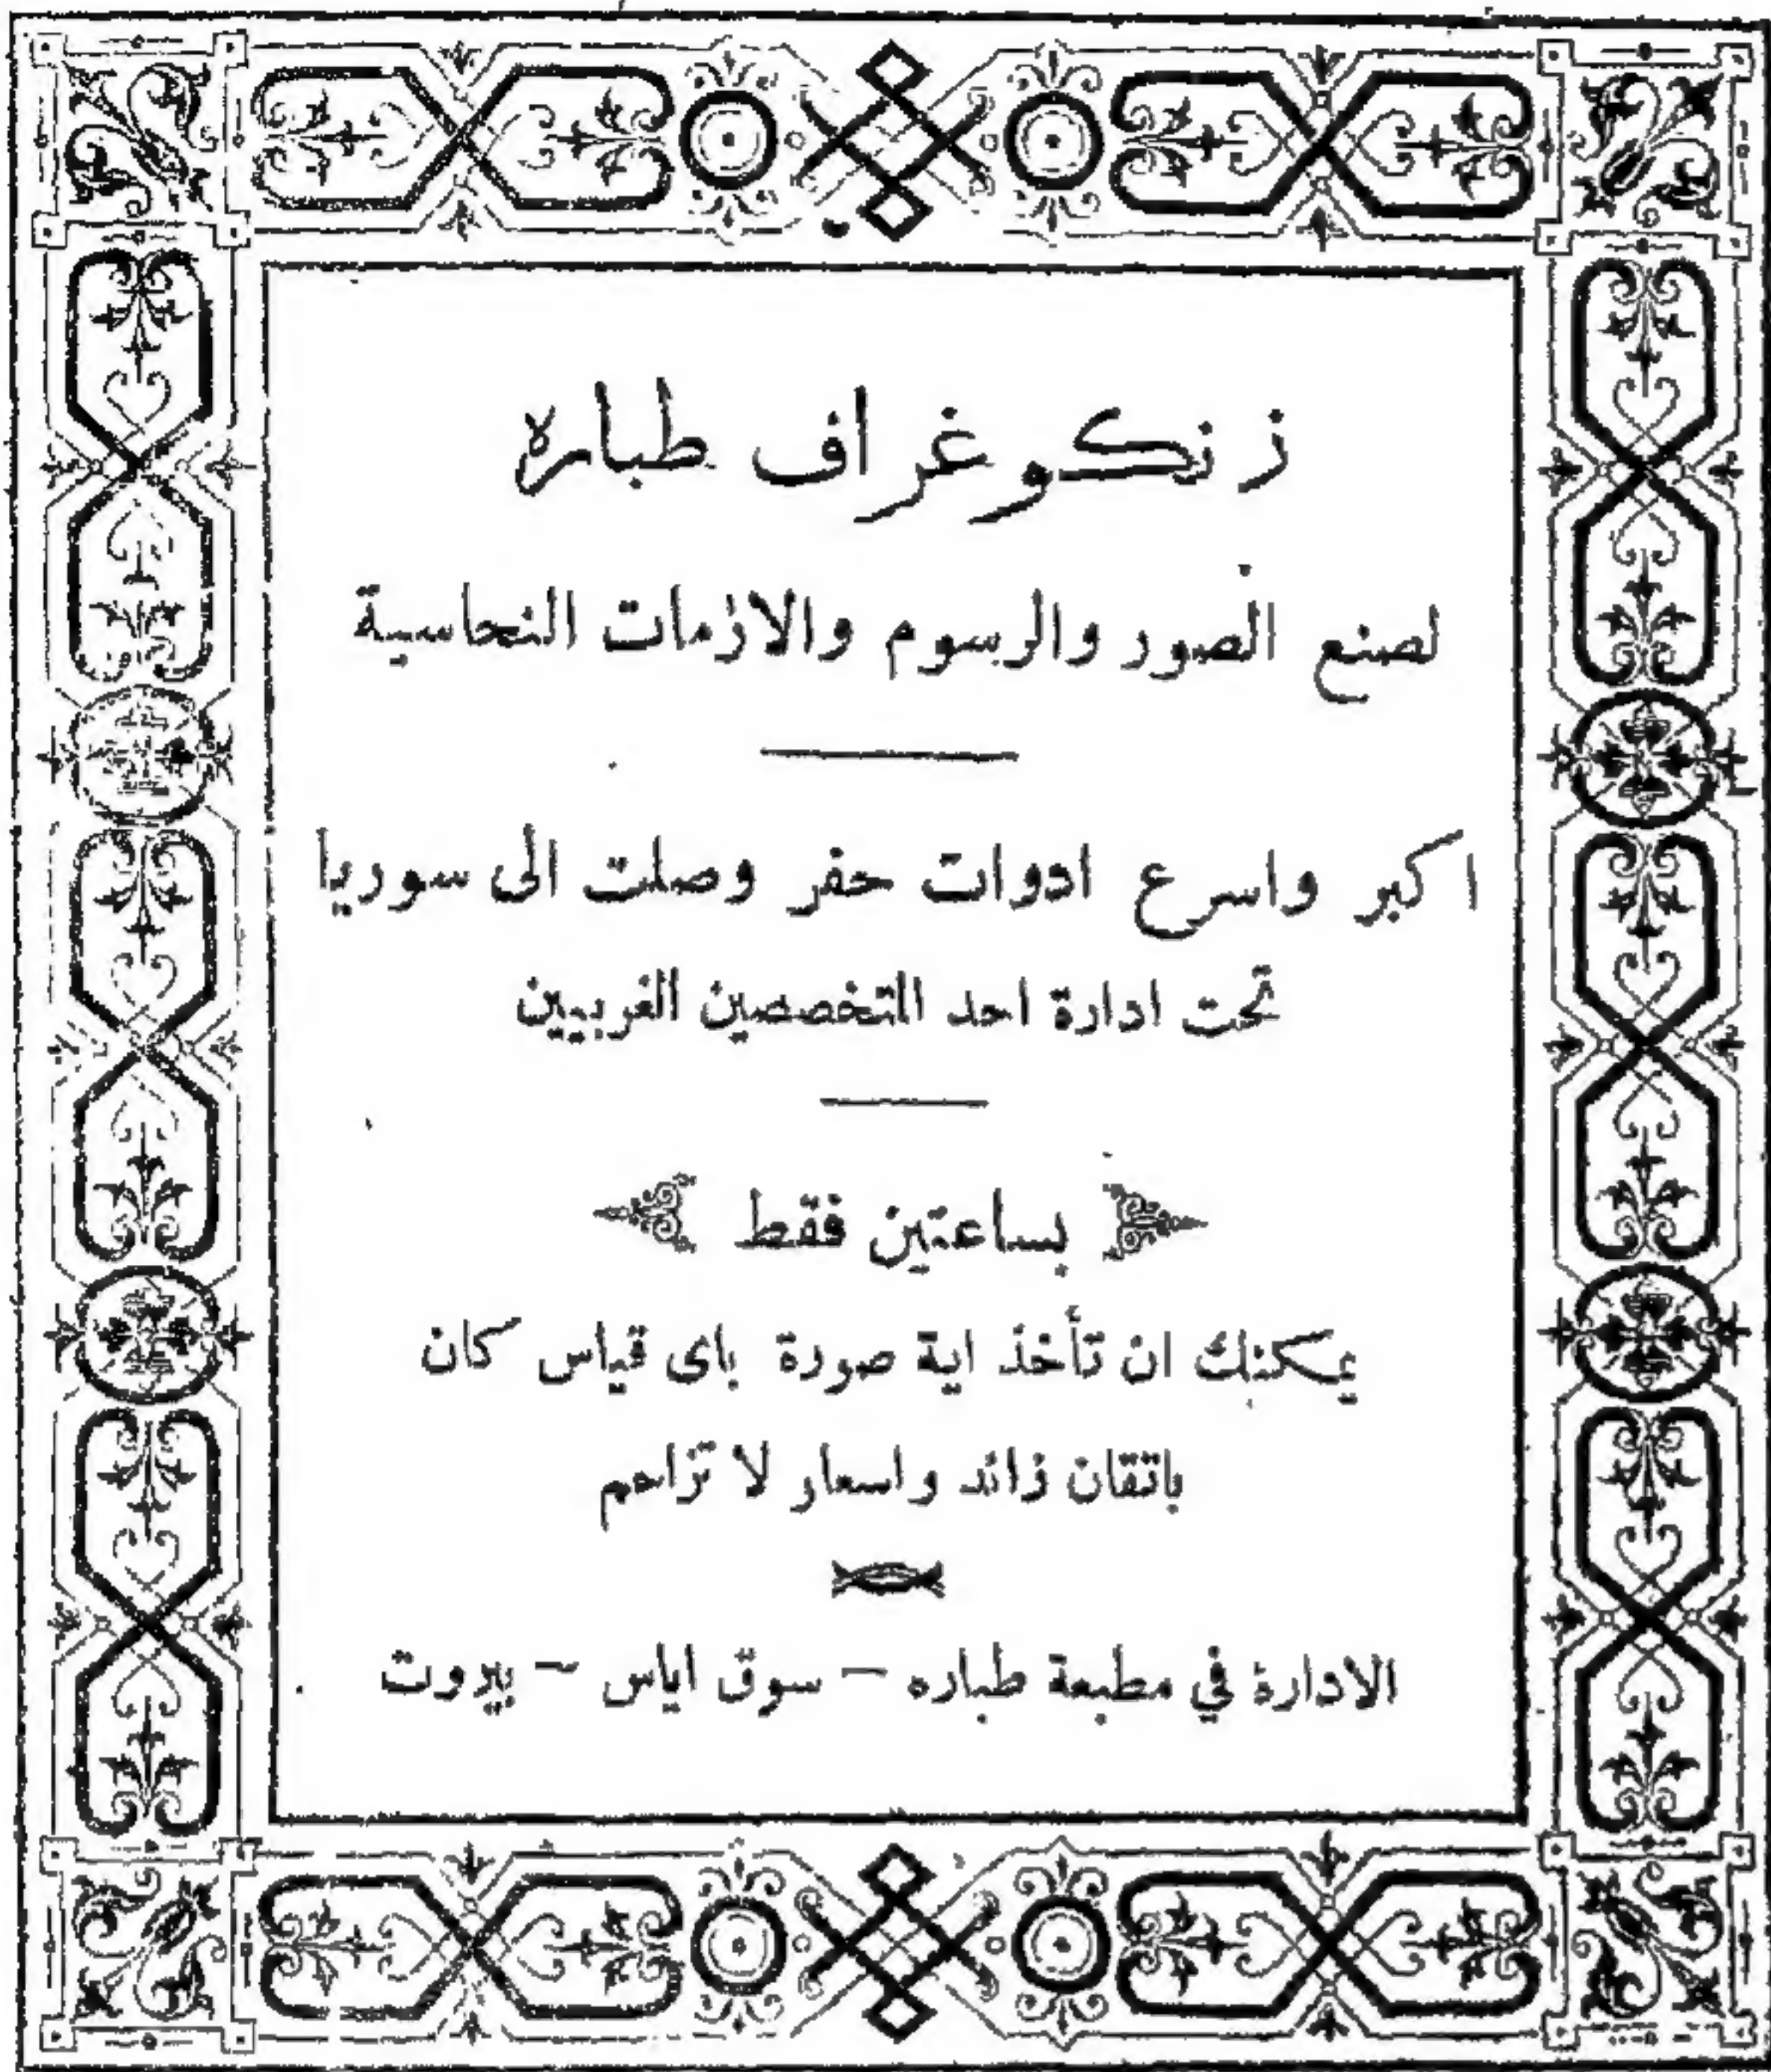 زنكوغراف طباره
لصنع الصور والرسوم والازمات النحاسية
اكبر واسرع ادوات حفر وصلت الى سوريا
تحت ادارة احد المتخصصين الغربيين
بساعتين فقط
يمكنك ان تأخذ اية صورة باى قياس كان
باتقان زائد واسعار لا تزاحم
الادارة في مطبعة طباره – سوق اياس – بيروت